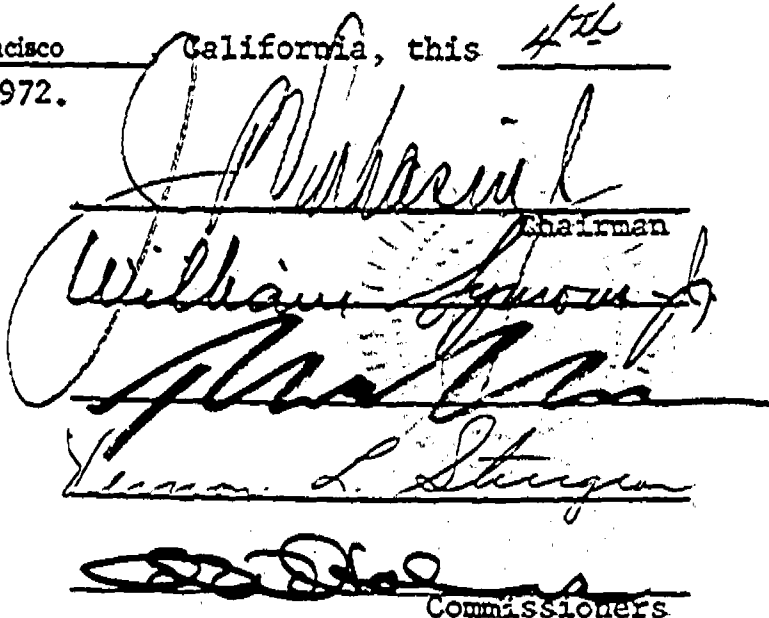 ncisco California, this 4th
972.
Chairman
William Symons Jr
Vernon L. Sturgeon
Commissioners